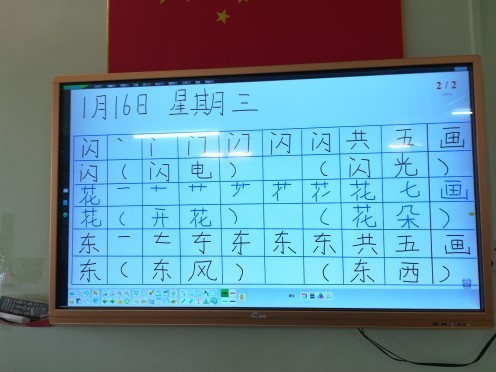 1月16日 星期三
2/2
闪 丶 丨 门 闪 闪 闪 共 五 画
闪 ( 闪 电 ) ( 闪 光 )
花 一 十 艹 艹 花 花 花 七 画
花 ( 开 花 ) ( 花 朵 )
东 一 𠂇 车 东 东 东 共 五 画
东 ( 东 风 ) ( 东 西 )